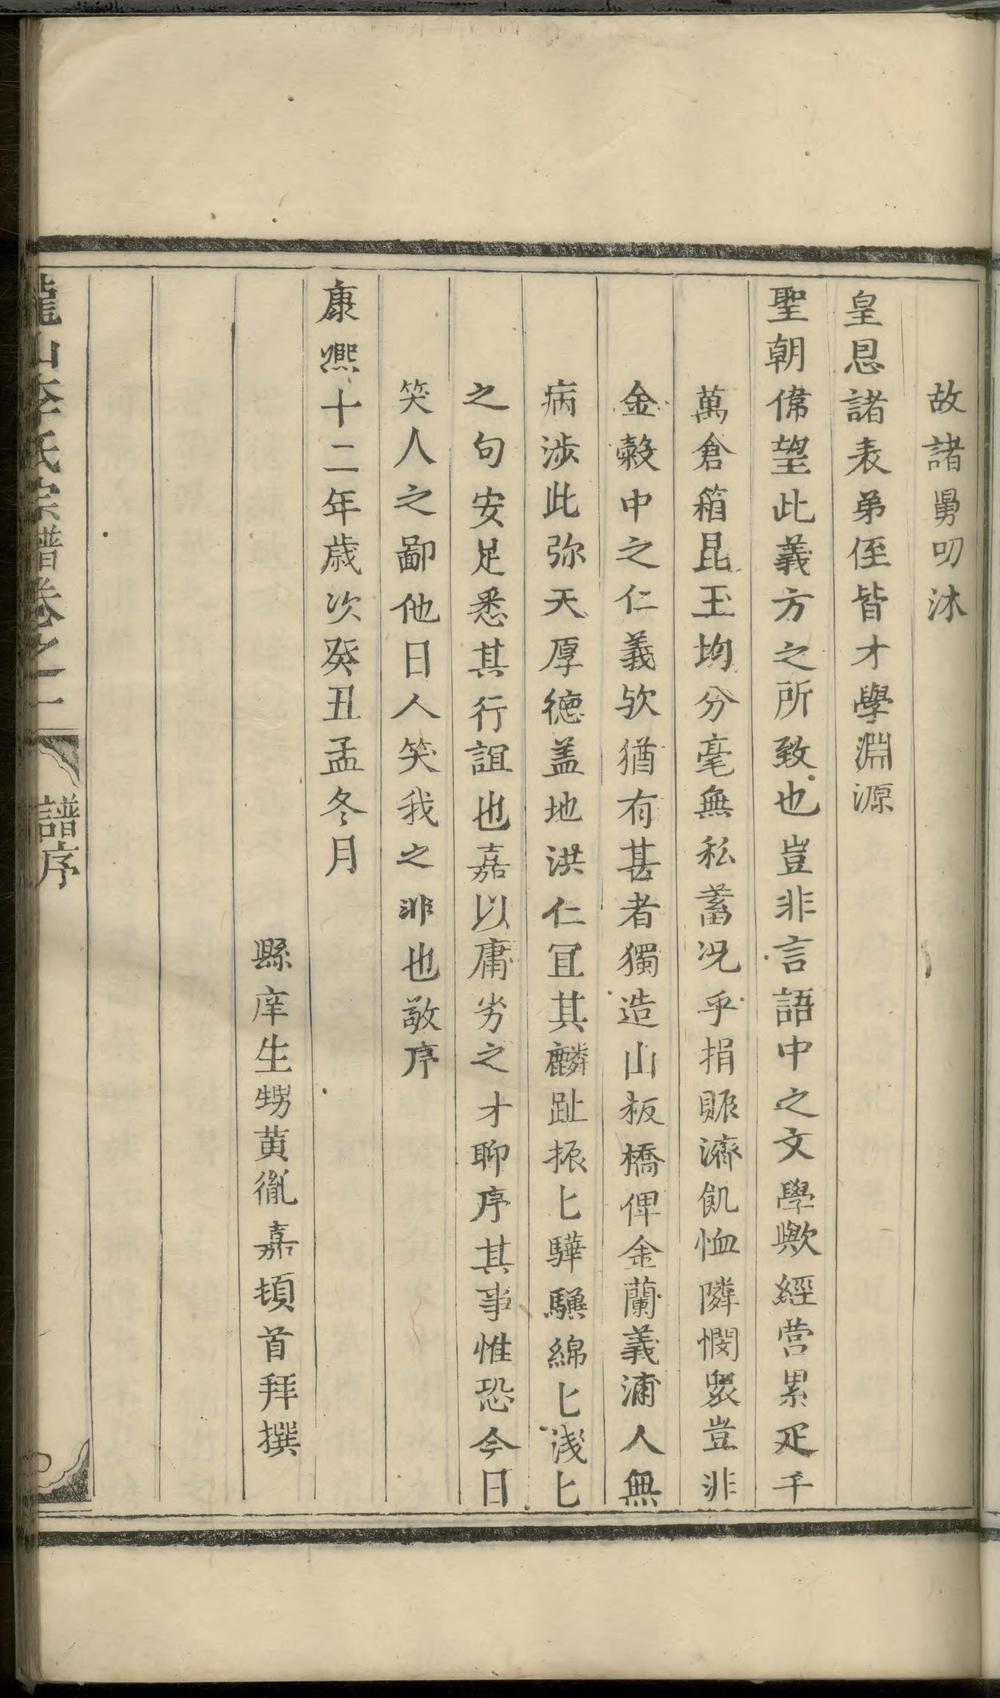 故諸舅叨沐
皇恩諸表弟侄皆才學淵源
聖朝偉望此義方之所致也豈非言語中之文學歟經营累疋千
萬倉箱昆玉均分毫無私蓄况乎捐賑濟飢恤隣憫衆豈非
金穀中之仁義欤猶有甚者獨造山板橋俾金蘭義浦人無
病涉此弥天厚德盖地洪仁宜其麟趾振匕驊騮綿匕淺匕
之句安足悉其行誼也嘉以庸劣之才聊序其事惟恐今日
笑人之鄙他日人笑我之非也敬序
康熈十二年歲次癸丑孟冬月
縣庠生甥黄胤嘉頓首拜撰
龍山李氏宗譜卷之一
譜序